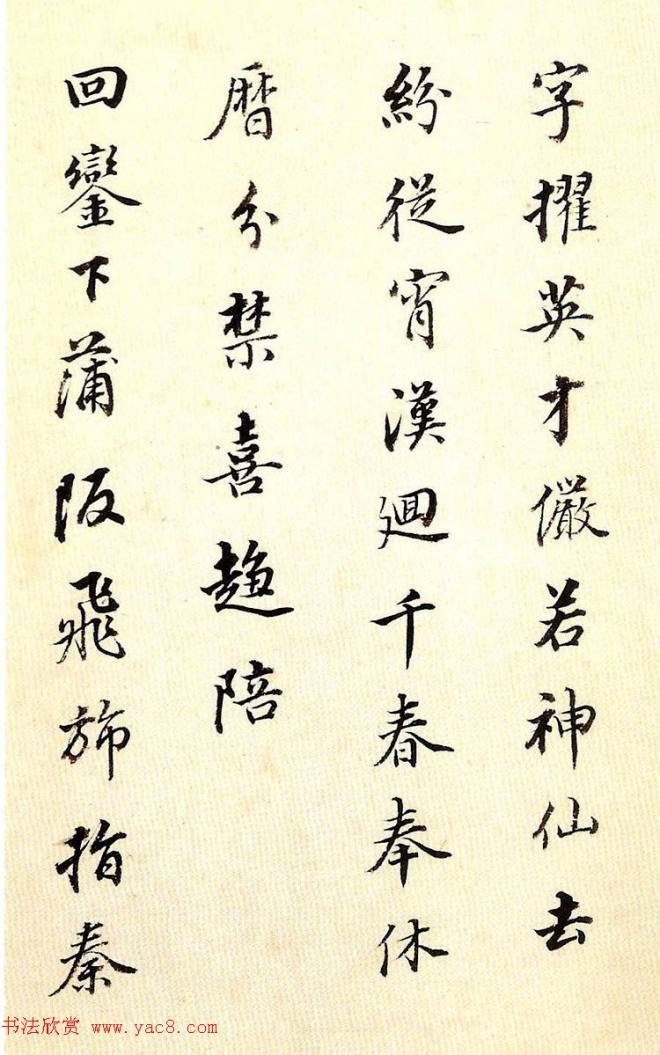 字擢英才儼若神仙去
紛從宵漢迴千春奉休
曆分禁喜趨陪
回鑾下蒲阪飛斾指秦
书法欣赏 www.yac8.com